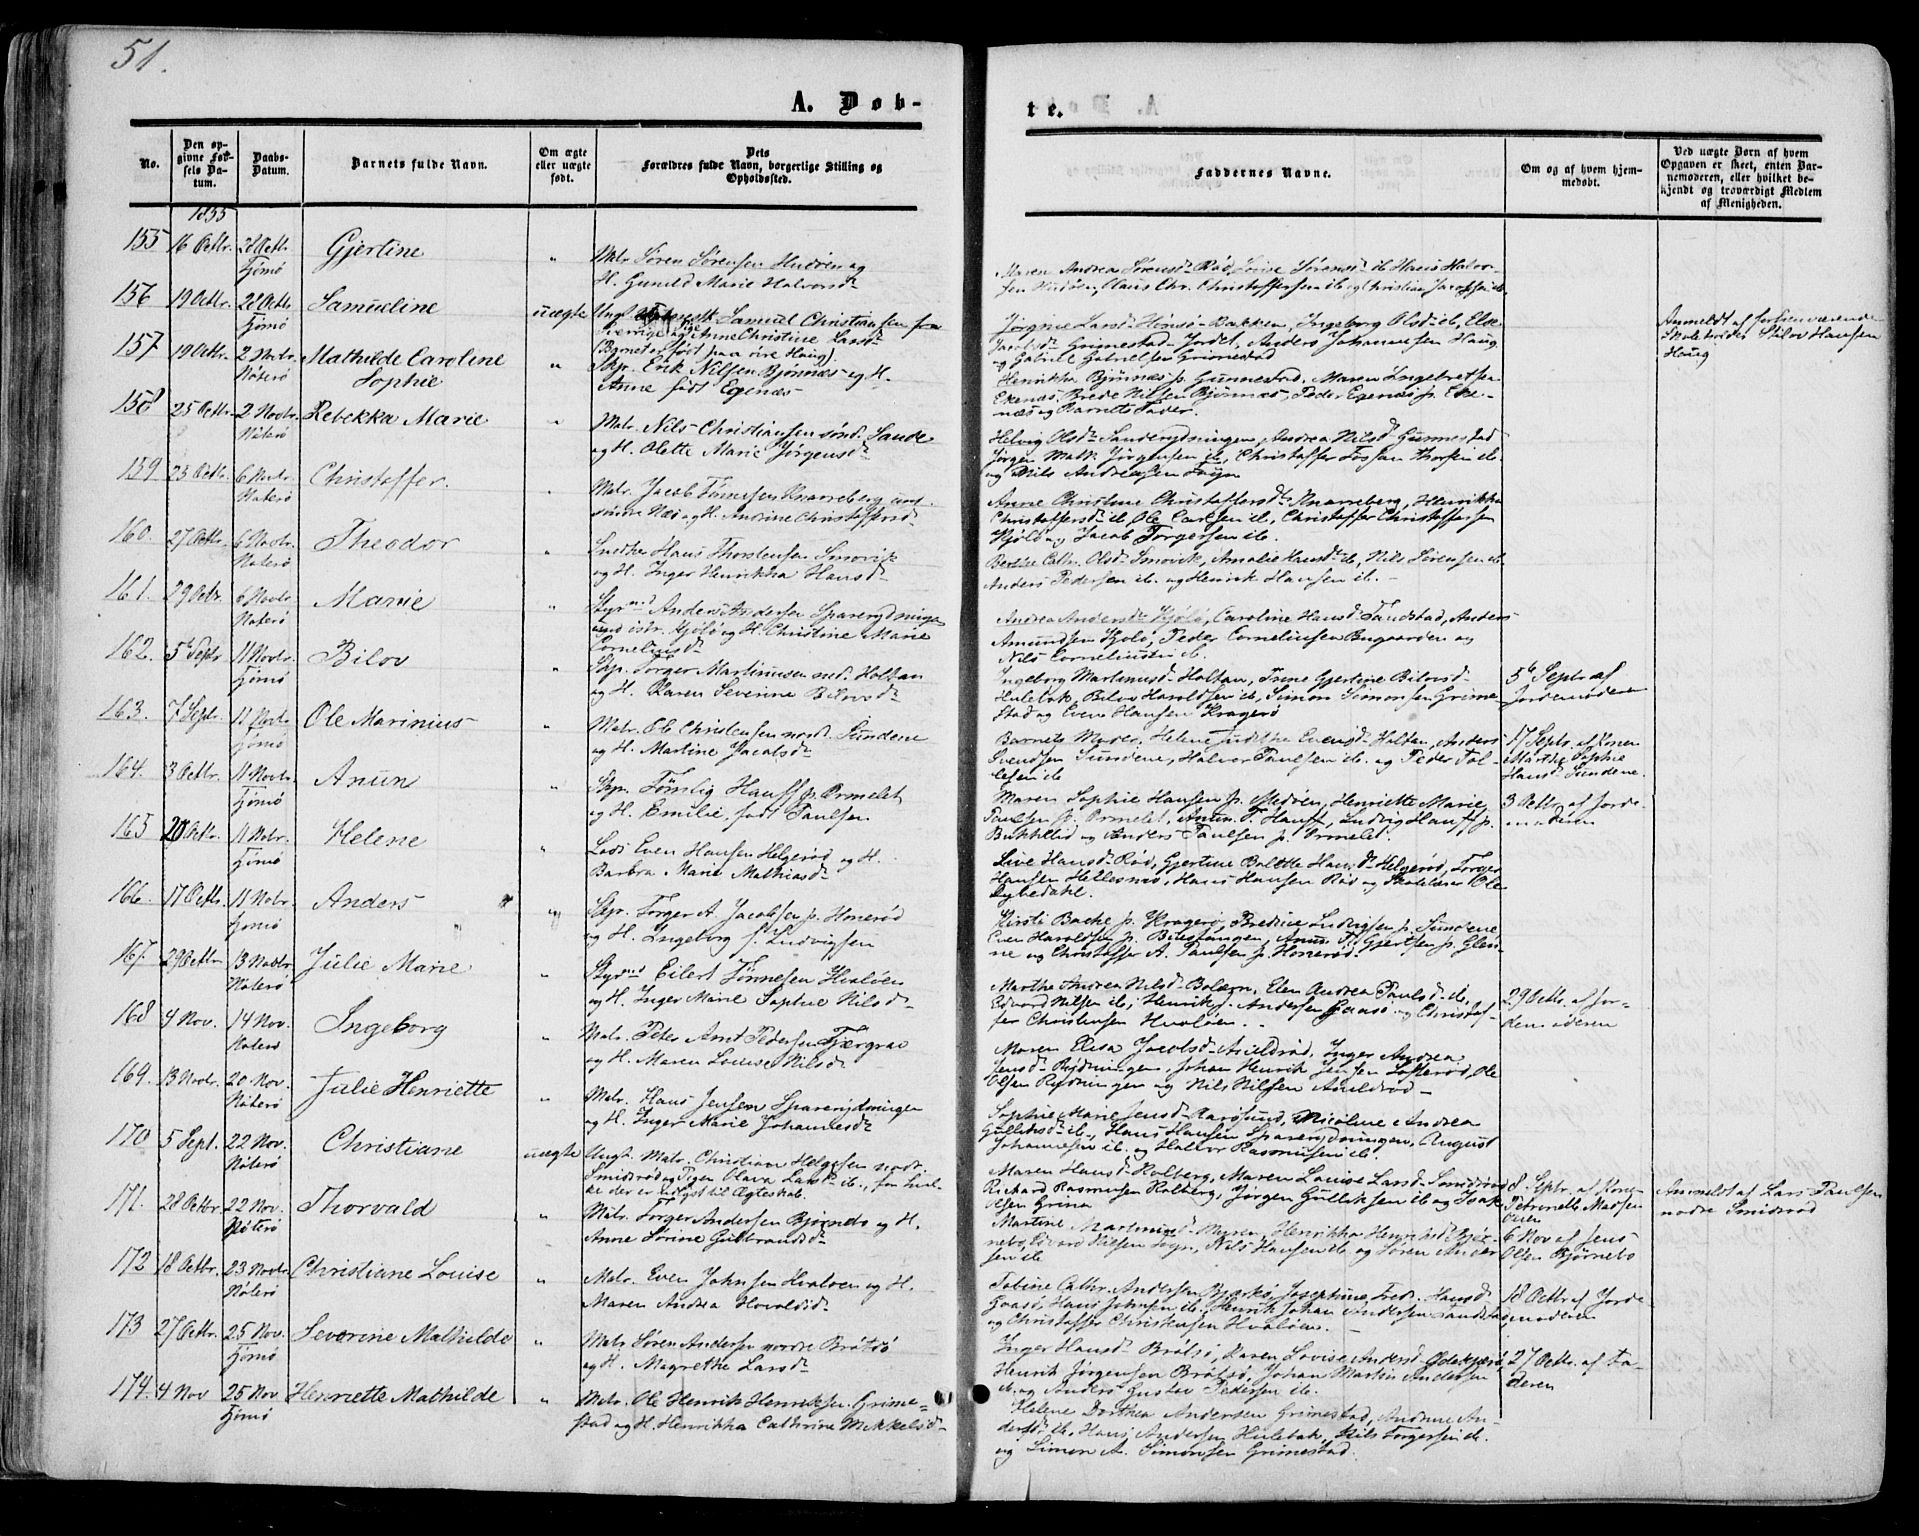 51.
A. Døb-
te.
No.
Den op-
givne Fød-
sels Da-
tum.
Daabs-
Datum.
Barnets fulde Navn.
Om ægte
eller uægte
født.
Dets
Forældres fulde Navn, borgerlige Stilling og
Opholdssted.
Faddernes Navne.
Om og af hvem hjem-
medøbt.
Ved uægte Børn af hvem
Opgaven er skeet, enten Bar-
nemoderen, eller hvilket be-
kjendt og troværdigt Medlem
af Menigheden.
1855
155 16 Octbr. 28 Octbr. Gjertine " Matr. Søren Sørensen Hudøen og
Tjømø
H. Gunild Marie Halvorsd
Maren Andrea Sørensd Rød, Sørensd ib. Hans Halvor-
sen Hudøen, Claus Chr. Christoffersen ib. og Christian Jacobsen ib.
156 19 Octbr. 28 Octbr. Samueline uægte Ungk. Samuel Christiansen fra
Tjømø
Sverrige og Pige Anne Christine Larsd
(Barnet er født paa øvre Haug).
Jørgine Larsd Hønsø-Bakken, Ingeborg Olsd ib., Else
Jacobsd Grimestad-Jordet, Anders Johannesen Haug
og Gabriel Gabrielsen Grimestad
Anmeldt af forhenværende
Skolelærer Hansen
Haug
157 19 Octbr. 2 Novbr. Mathilde Caroline
Nøterø Sophie
" Skpr. Erik Nilsen Bjønnæs og H.
Anne født Egenæs
Henrikka Bjønnæs p. Gunnestad, Maren Ingebretsen
Ekenæs, Brede Nilsen Bjønnæs, Peder Egenæs p. Eke-
næs og Barnets Fader.
158 25 Octbr. 2 Novbr. Rebekka Marie " Matr. Nils Christiansen sønd. Sande
Nøterø
og H. Olette Marie Jørgensd
Helvig Olsd Sanderydningen, Andrea Nilsd Gunnestad
Jørgen Math. Jørgensen ib., Christoffer Thorsen ib.
og Nils Andreasen
159 23 Octbr. 6 Novbr. Christoffer. " Matr. Jacob Tønnesen Knarreberg
Nøterø
søndre Næs og H. Andrine Christoffersd
Anne Christine Christoffersd Knarreberg, Henrikka
Christoffersd ib. Ole Carlsen ib., Christoffer Christoffersen
Hjølø og Jacob Torgersen ib.
160. 27 Octbr. 6 Novbr. Theodor " Snedker Hans Thorstensen Smovik
Nøterø
og H. Inger Henrikka Hansd
Bertine Cath. Olsd Smovik, Amalie Hansd ib., Nils Sørensen ib.
Anders Pedersen ib. og Henrik Hansen ib.
161. 29 Octbr. 8 Novbr. Marie " Styrmd Anders Andersen Sparerydningen
Nøterø
østr. Kjølø og H. Christine Marie
Corneliusd
Andrea Andersd Kjølø, Caroline Hansd Tandstad, Anders
Amundsen Kjølø, Peder Corneliusen Bugaarden og
Nils Corneliussen ib.
162. 5te Septr 11 Novbr. Bilov " Skpr. Torger Martinusen ned. Holtan
Tjømø
og H. Karen Severine Bilovsd
Ingeborg Martinusd Holtan, Trine Gjertine Bilovsd
Huletak, Bilov Haroldsen ib., Simon Simonsen Grime-
stad og Even Hansen Kragerø
5te Septr af
Jordemoderen
163. 7 Septr. 11 Novbr. Ole Marinius " Matr. Ole Christensen nord. Sundene
Tjømø
og H. Martine Jacobsd
Barnets Moder, Helene Judithe Evensd Holtan, Anders
Svendsen Sundene, Halvor Paulsen ib. og Peder Tol-
lefsen ib
17 Septr. af Konen
Marthe Sophie
Hansd Sundene.
164. 3 Octbr. 11 Novbr. Anun " Skpr. Tønslig Hauff p. Ormelet
Tjømø
og H. Emilie, født Paulsen
Maren Sophie Hansen p. Medøen, Henriette Marie
Paulsen p. Ormelet, Anun T. Hauff, Ludvig Hauff p.
Bukkelid og Anders Paulsen p. Ormelet
3 Octbr. af Jorde-
moderen
165 20 Octbr. 11 Novbr. Helene " Lods Even Hansen Helgerød og H.
Tjømø
Barbra Marie Mathiasd
Live Hansd Rød, Gjertine Bolette Hansd Helgerød, Torger
Hansen Hellesmø, Hans Hansen Rød og Skolelærer Ole
Dybedahl.
166. 17 Octbr. 11 Novbr. Anders " Skpr. Torger A. Jacobsen p. Honerød
Tjømø
og H. Ingeborg f. Ludvigsen
Kirsti Backe p. Kragerø, Bredine Ludvigsen p. Sundene
Even Haroldsen p. Buestangen, Anun T. Gjertsen p. Glen-
ne og Christoffer A. Paulsen p. Honerød.
167. 29 Octbr 13 Novbr. Julie Marie " Styrmd Eilert Tønnesen Hvaløen
Nøterø
og H. Inger Marie Sophie Nilsd
Marthe Andrea Nilsd Bolæren, Elen Andrea Paulsd ib.
Edvard Nilsen ib., Henrik J. Andersen Gaasø og Christof-
fer Christensen Hvaløen.
29 Octbr. af Jor-
demoderen
168 4 Nov. 14 Nov. Ingeborg " Matr. Peter Arnt Pedersen Fjærgrav
Nøterø
og H. Maren Louise Nilsd
Maren Elisa Jacobsd Auldrød, Inger Andrea
Jensd Rydningen, Johan Henrik Jensen Lofterød, Ole
Olsen Rydningen og Nils Nilsen Auldrød
169. 13 Novbr. 20 Nov. Julie Henriette " Matr. Hans Jensen Sparerydningen
Nøterø
og H. Inger Marie Johannesd
Sophie Marie Jensd Rørsund, Nicoline Andrea
Gulliksd ib., Hans Hansen Sparerydningen, August
Johannesen ib. og Halvor Rasmussen ib.
170 5 Sept. 22 Nov. Christiane uægte Ungk. Matr. Christian Helgesen nordr.
Nøterø
Smidsrød og Pigen Olava Larsd ib., for hvil-
ke der er udlyst til Ægteskab.
Maren Hansd Kolberg, Maren Louise Larsd Smidsrød
Richard Rasmussen Kolberg, Jørgen Gulliksen ib. og Isak
Olsen Grina
8 Septr. af Kone
Petronelle Madsen
Øien
Anmeldt af Lars Paulsen
nodre Smidsrød
171. 28 Octbr. 22 Nov. Thorvald " Matr. Torger Andersen Bjørnebo og H.
Nøterø
Anne Sørine Gulbrandsd
Martine Martinusd Myren, Henrikka Henriksd Bjør-
nebo, Edvard Nilsen Føyn, Nils Hansen ib. og Søren Ander-
sen ib
6 Nov af Jens
Olsen Bjørnebo
172 18 Octbr. 23 Novbr. Christiane Louise " Matr. Even Johnsen Hvaløen og H.
Nøterø
Maren Andrea Hovaldsd
Tobine Cathr. Andersen Bjerkø, Josephine Fredr. Hansd
Gaasø, Hans Johnsen ib., Henrik Johan Andersen Tandstad
og Christoffer Christensen Hvaløen.
18 Octbr af Jorde-
moderen
173 27 Octbr. 25 Nov. Severine Mathilde " Matr Søren Andersen nordre Brøtsø
Tjømø
og H. Magrethe Larsd
Inger Hansd Brøtsø, Karen Lovise Andersd Ødekjære
Henrik Jørgensen Brøtsø, Johan Martin Andersen
ib. og Anders Gustav Pedersen ib.
27 Octbr. af Fa-
deren
174. 4 Nov 25 Nov. Henriette Mathilde " Matr. Ole Henrik Henriksen Grime-
Tjømø
stad og H. Henrikka Cathrine Mikkelsd
Helene Dorthea Andersen Grimestad, Andrine An-
dersd ib., Hans Andersen Huletak, Nils Torgersen ib.
og Simon A. Simonsen Grimestad.